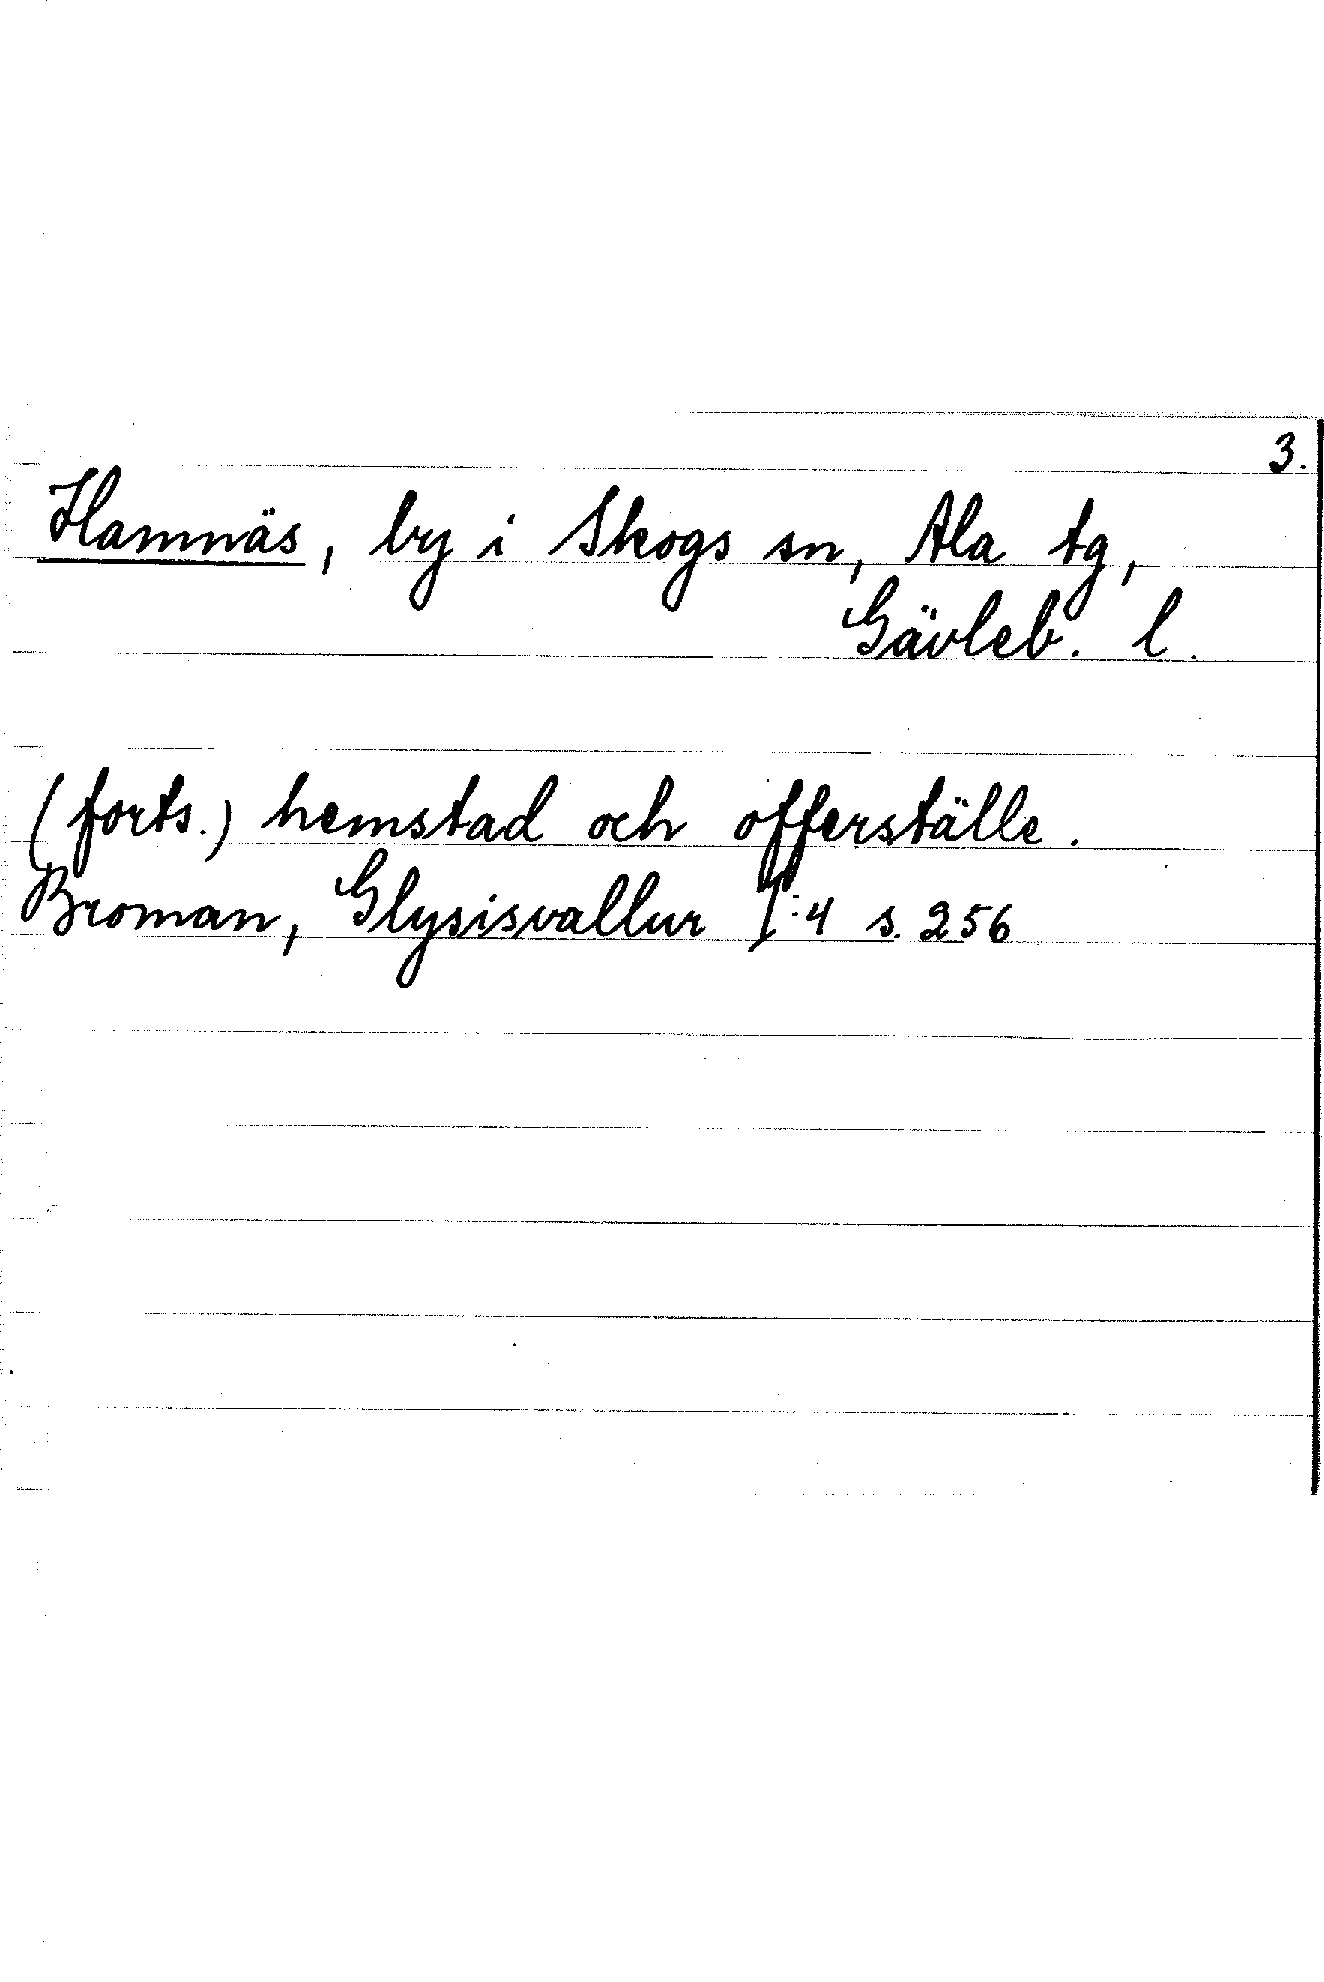 3.
Hamnäs, by i Skogs sn, Ala tg,
Gävleb. l.
(forts.) hemstad och offerställe.
Broman, Glysisvallur I:4 s. 256